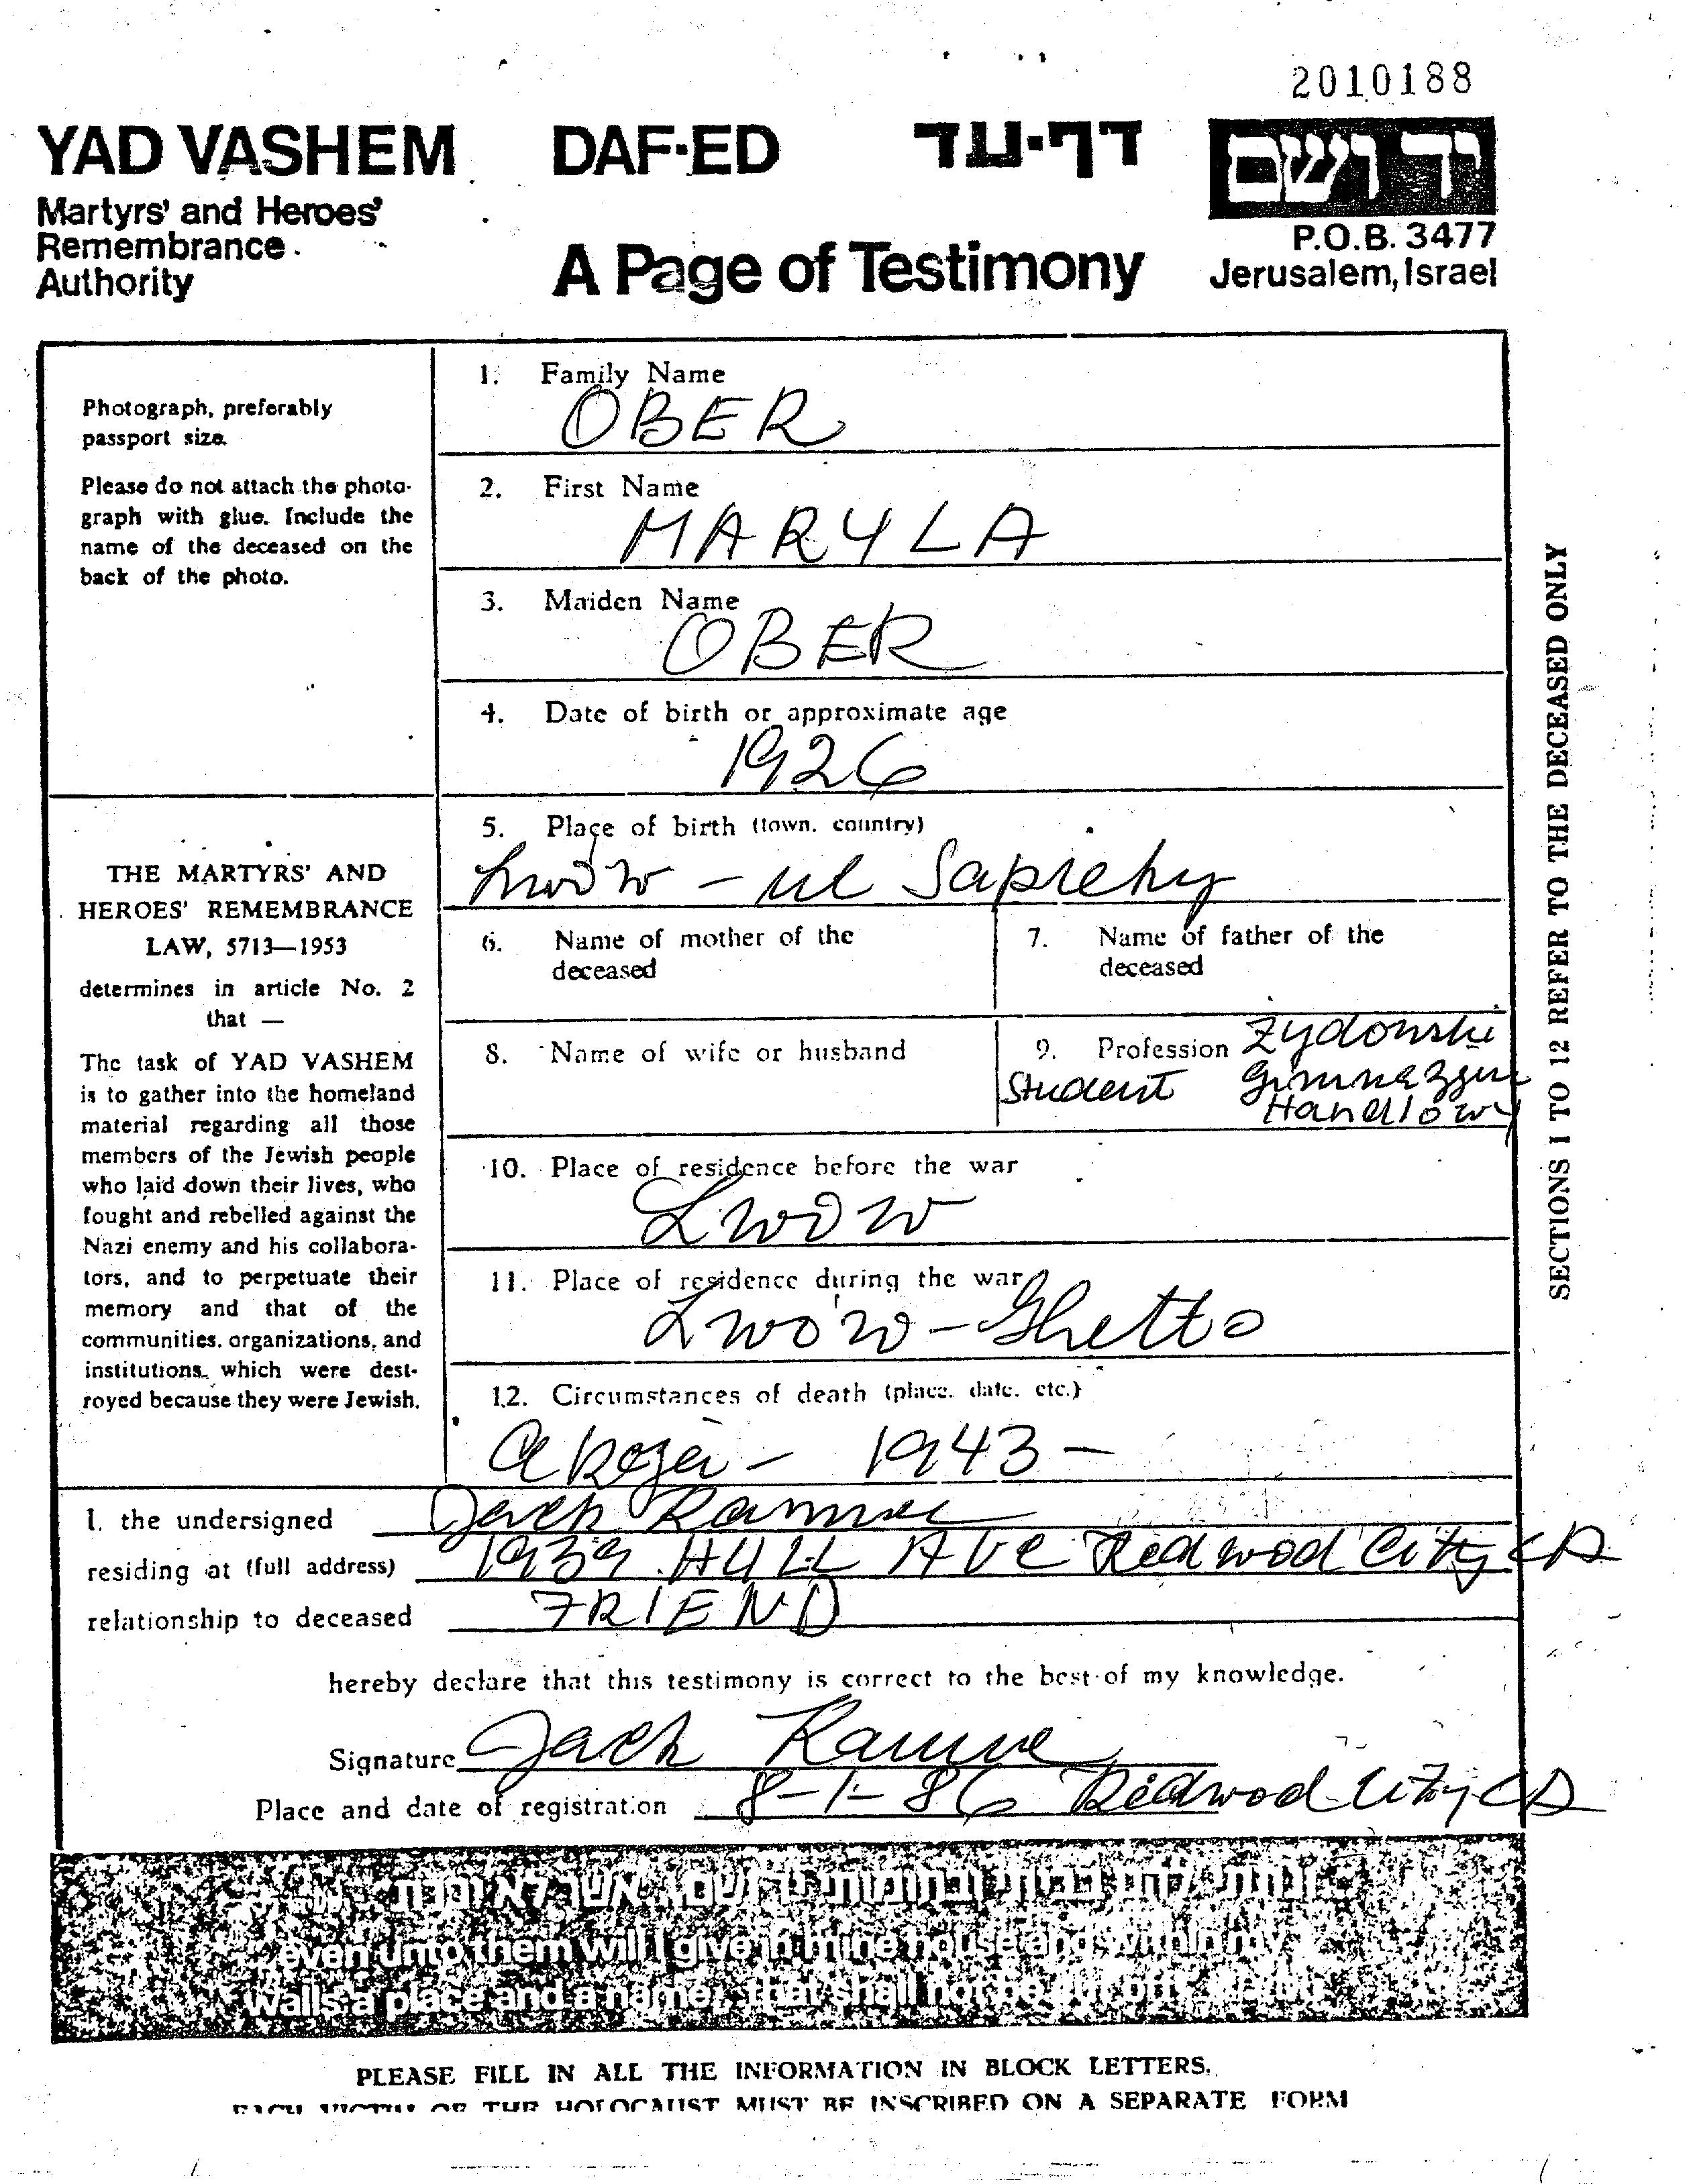 2010188
YAD VASHEM DAF-ED דף-עד יד ושם
Martyrs' and Heroes'
Remembrance
Authority
A Page of Testimony
P.O.B. 3477
Jerusalem, Israel
Photograph, preferably
passport size.
Please do not attach the photo-
graph with glue. Include the
name of the deceased on the
back of the photo.
THE MARTYRS' AND
HEROES' REMEMBRANCE
LAW, 5713—1953
determines in article No. 2
that —
The task of YAD VASHEM
is to gather into the homeland
material regarding all those
members of the Jewish people
who laid down their lives, who
fought and rebelled against the
Nazi enemy and his collabora-
tors, and to perpetuate their
memory and that of the
communities, organizations, and
institutions, which were dest-
royed because they were Jewish.
1. Family Name
OBER
2. First Name
MARYLA
3. Maiden Name
OBER
4. Date of birth or approximate age
1926
5. Place of birth (town, country)
Lwów - ul Sapiehy
6. Name of mother of the
deceased
7. Name of father of the
deceased
8. Name of wife or husband
9. Profession Zydowski
Student Gimnazjum
Handlowy
10. Place of residence before the war
Lwów
11. Place of residence during the war
Lwów - Ghetto
12. Circumstances of death (place, date, etc.)
akcja - 1943 -
SECTIONS 1 TO 12 REFER TO THE DECEASED ONLY
I, the undersigned Jack
residing at (full address) 1939 HULL AVE Redwod City CA
relationship to deceased FRIEND
hereby declare that this testimony is correct to the best of my knowledge.
Signature Jack
Place and date of registration 8-1-86 Redwod City CA
ונתתי להם בביתי ובחומותי יד ושם... אשר לא יכרת
...even unto them will I give in mine house and within my
walls a place and a name... that shall not be cut off.
PLEASE FILL IN ALL THE INFORMATION IN BLOCK LETTERS.
EACH VICTIM OF THE HOLOCAUST MUST BE INSCRIBED ON A SEPARATE FORM